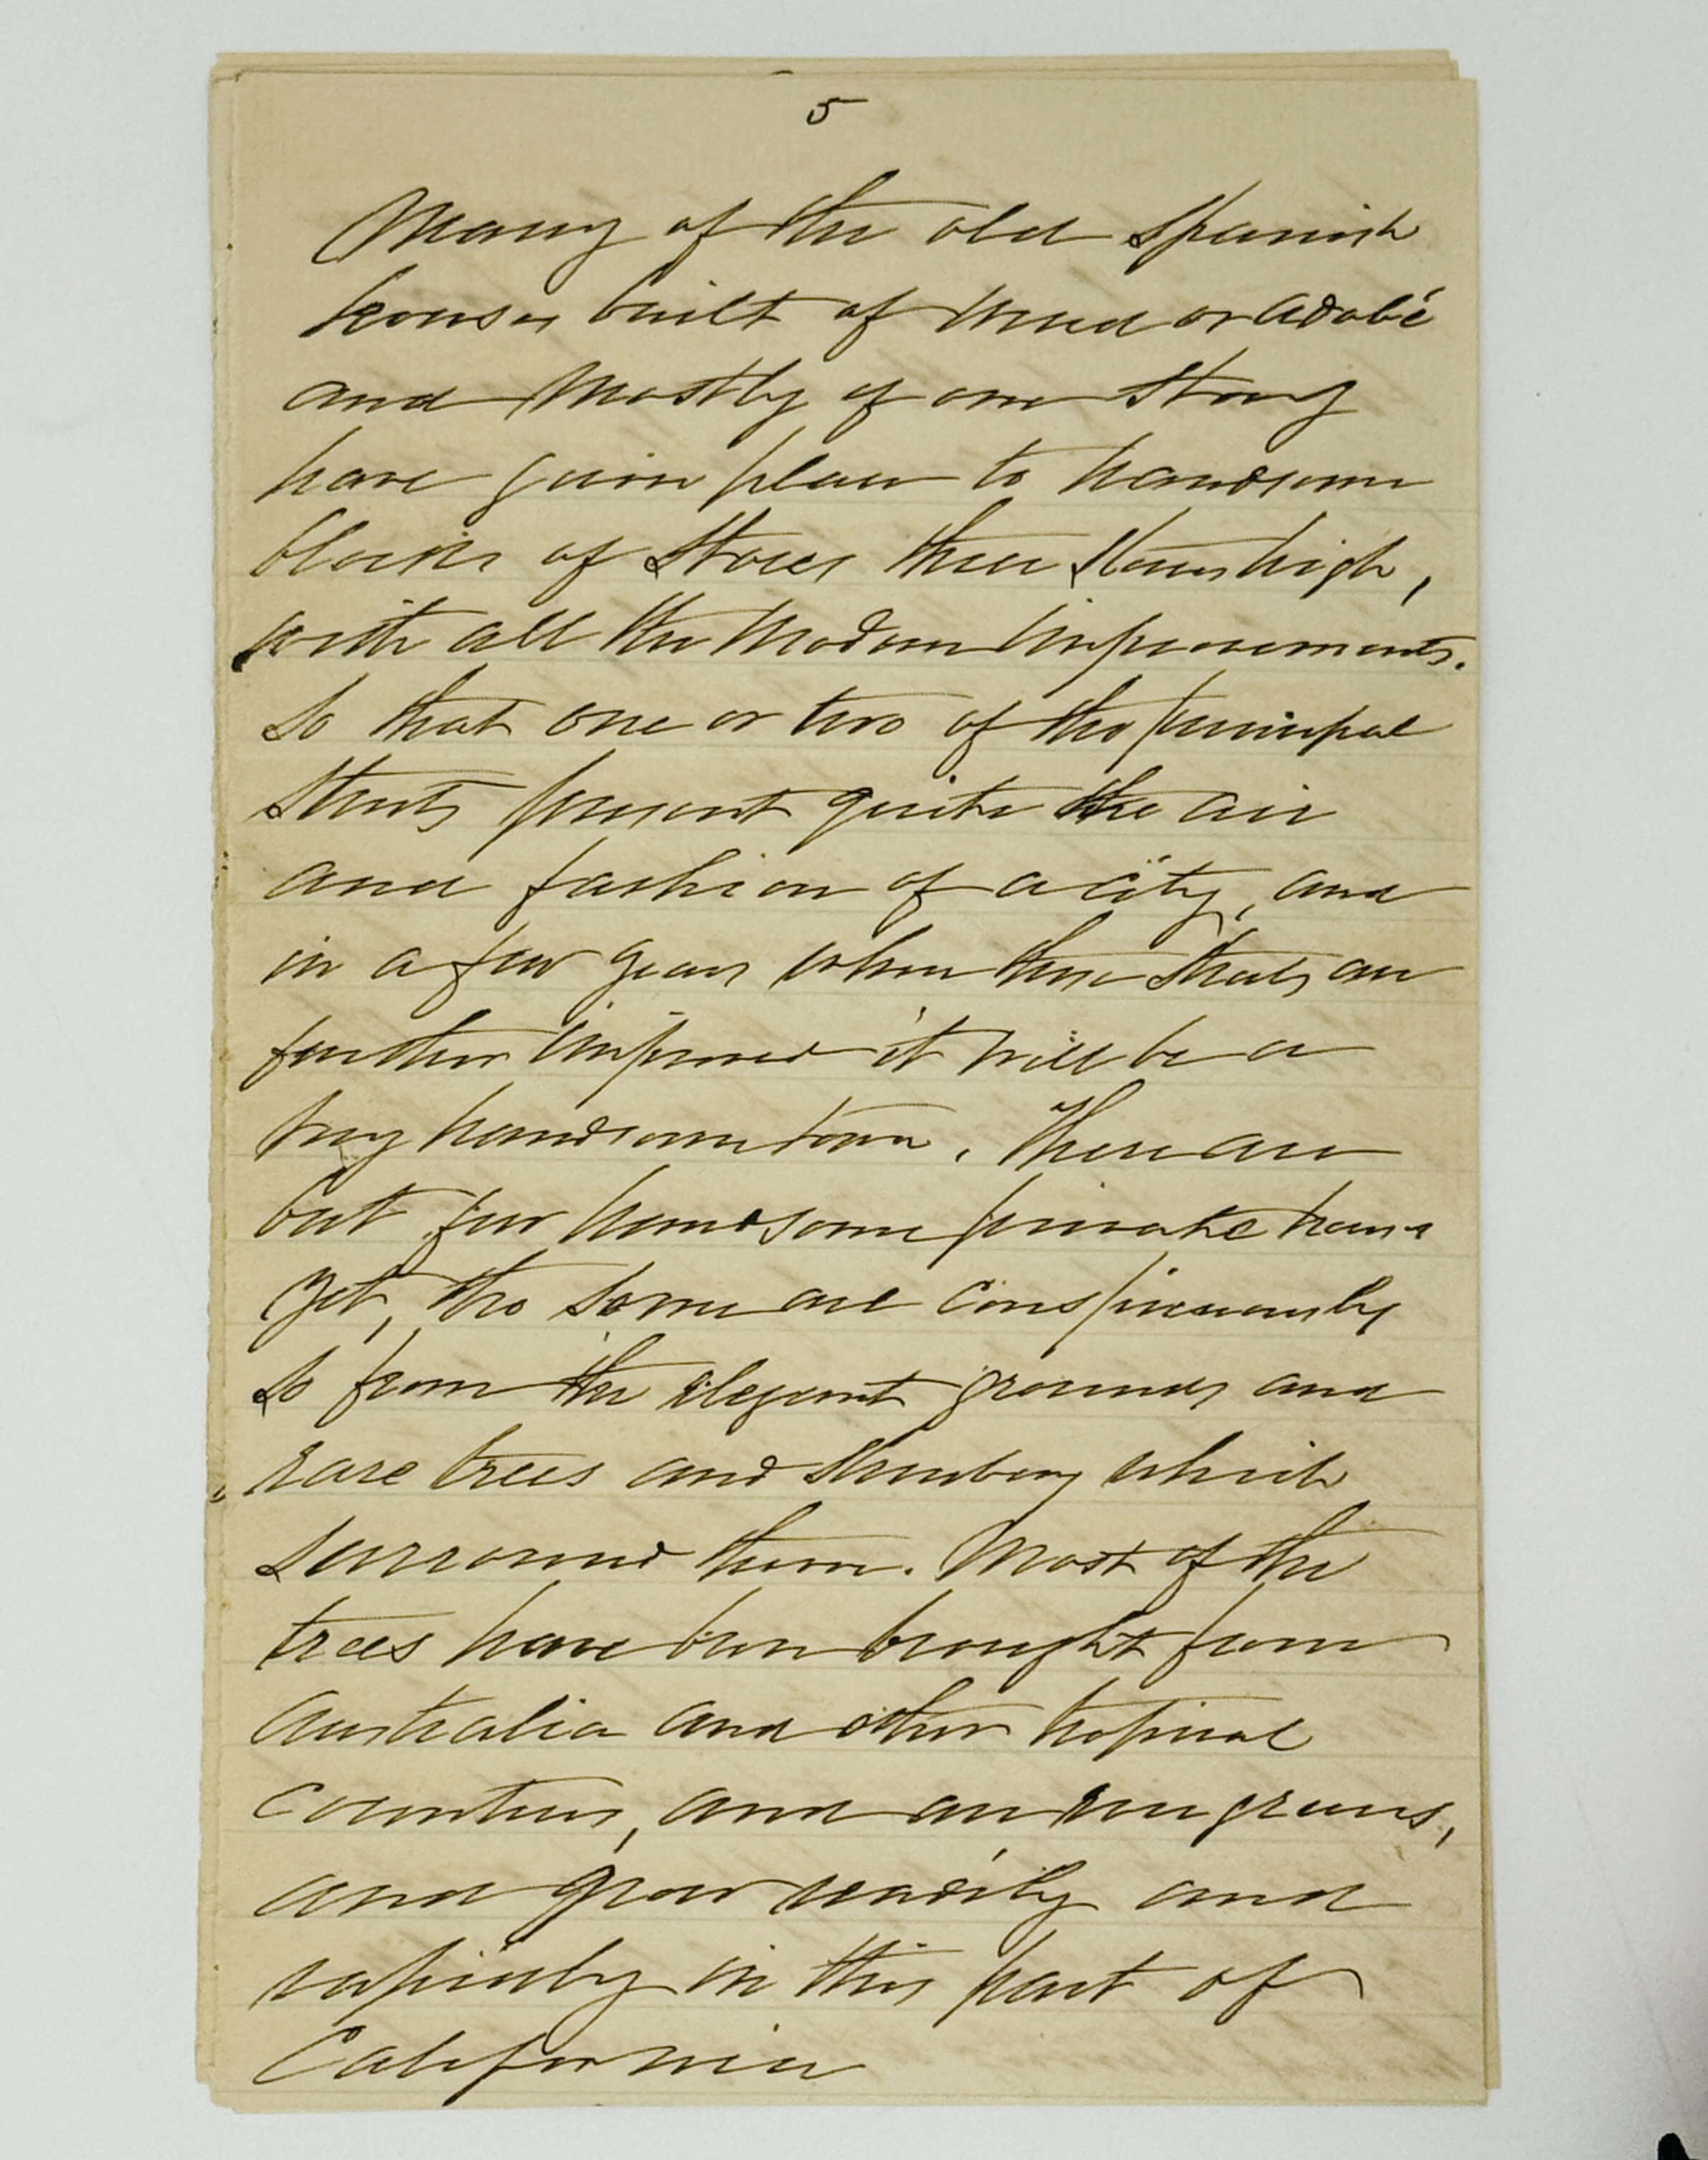 5
Many of the old Spanish
houses built of mud or adobé
and mostly of one story
have given place to handsome
blocks of stores three stories high,
with all the modern improvements.
So that one or two of the principal
streets present quite the air
and fashion of a city, and
in a few years when these streets are
further improved it will be a
very handsome town. There are
but few handsome private houses
yet, tho some are conspicuously
so from the elegant grounds and
rare trees and shrubbery which
surround them. Most of the
trees have been brought from
Australia and other tropical
countries, and are evergreens,
and grow readily and
rapidly in this part of
California